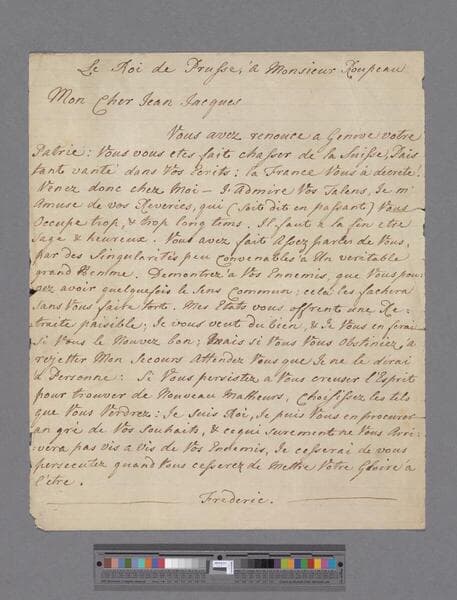 Le Roi de Prusse, à Monsieur Rousseau
Mon Cher Jean Jacques
Vous avez renoncé a Genève votre
Patrie: Vous vous etes fait chasser de la Suisse, Païs
tant vanté dans Vos Ecrits: la France Vous a decreté.
Venez donc chez Moi - J'Admire Vos Talens, Je m'
Amuse de vos Reveries, qui (soit dit en passant) Vous
Occupe trop, & trop long tems. Il faut a la fin etre
Sage & heureux. Vous avez fait Assez parler de Vous,
par des Singularités peu convenables à Un veritable
grand Homme. Demontrez à Vos Ennemis, que Vous pou-
vez avoir quelquefois le Sens Commun: cela les fachera
Sans Vous faire tort. Mes Etats vous offrent une Re-
traite paisible; Je vous veut du bien, & Je Vous en ferai
Si Vous le trouvez bon; Mais si Vous Vous Obstiniez, à
rejetter Mon Secours Attendez Vous que Je ne le dirai
à Personne: Si Vous persistez a Vous creuser l'Esprit
pour trouver de Nouveau Malheurs, Choisissez les tels
que Vous Voudrez: Je Suis Roi, Je puis Vous en procurer
au gré de Vos Souhaits, & ce qui surement ne Vous Arri-
vera pas vis a vis de Vos Ennemis, Je cesserai de vous
persecuter quand Vous cesserez de Mettre Votre Gloire à
l'être.
Frederic.